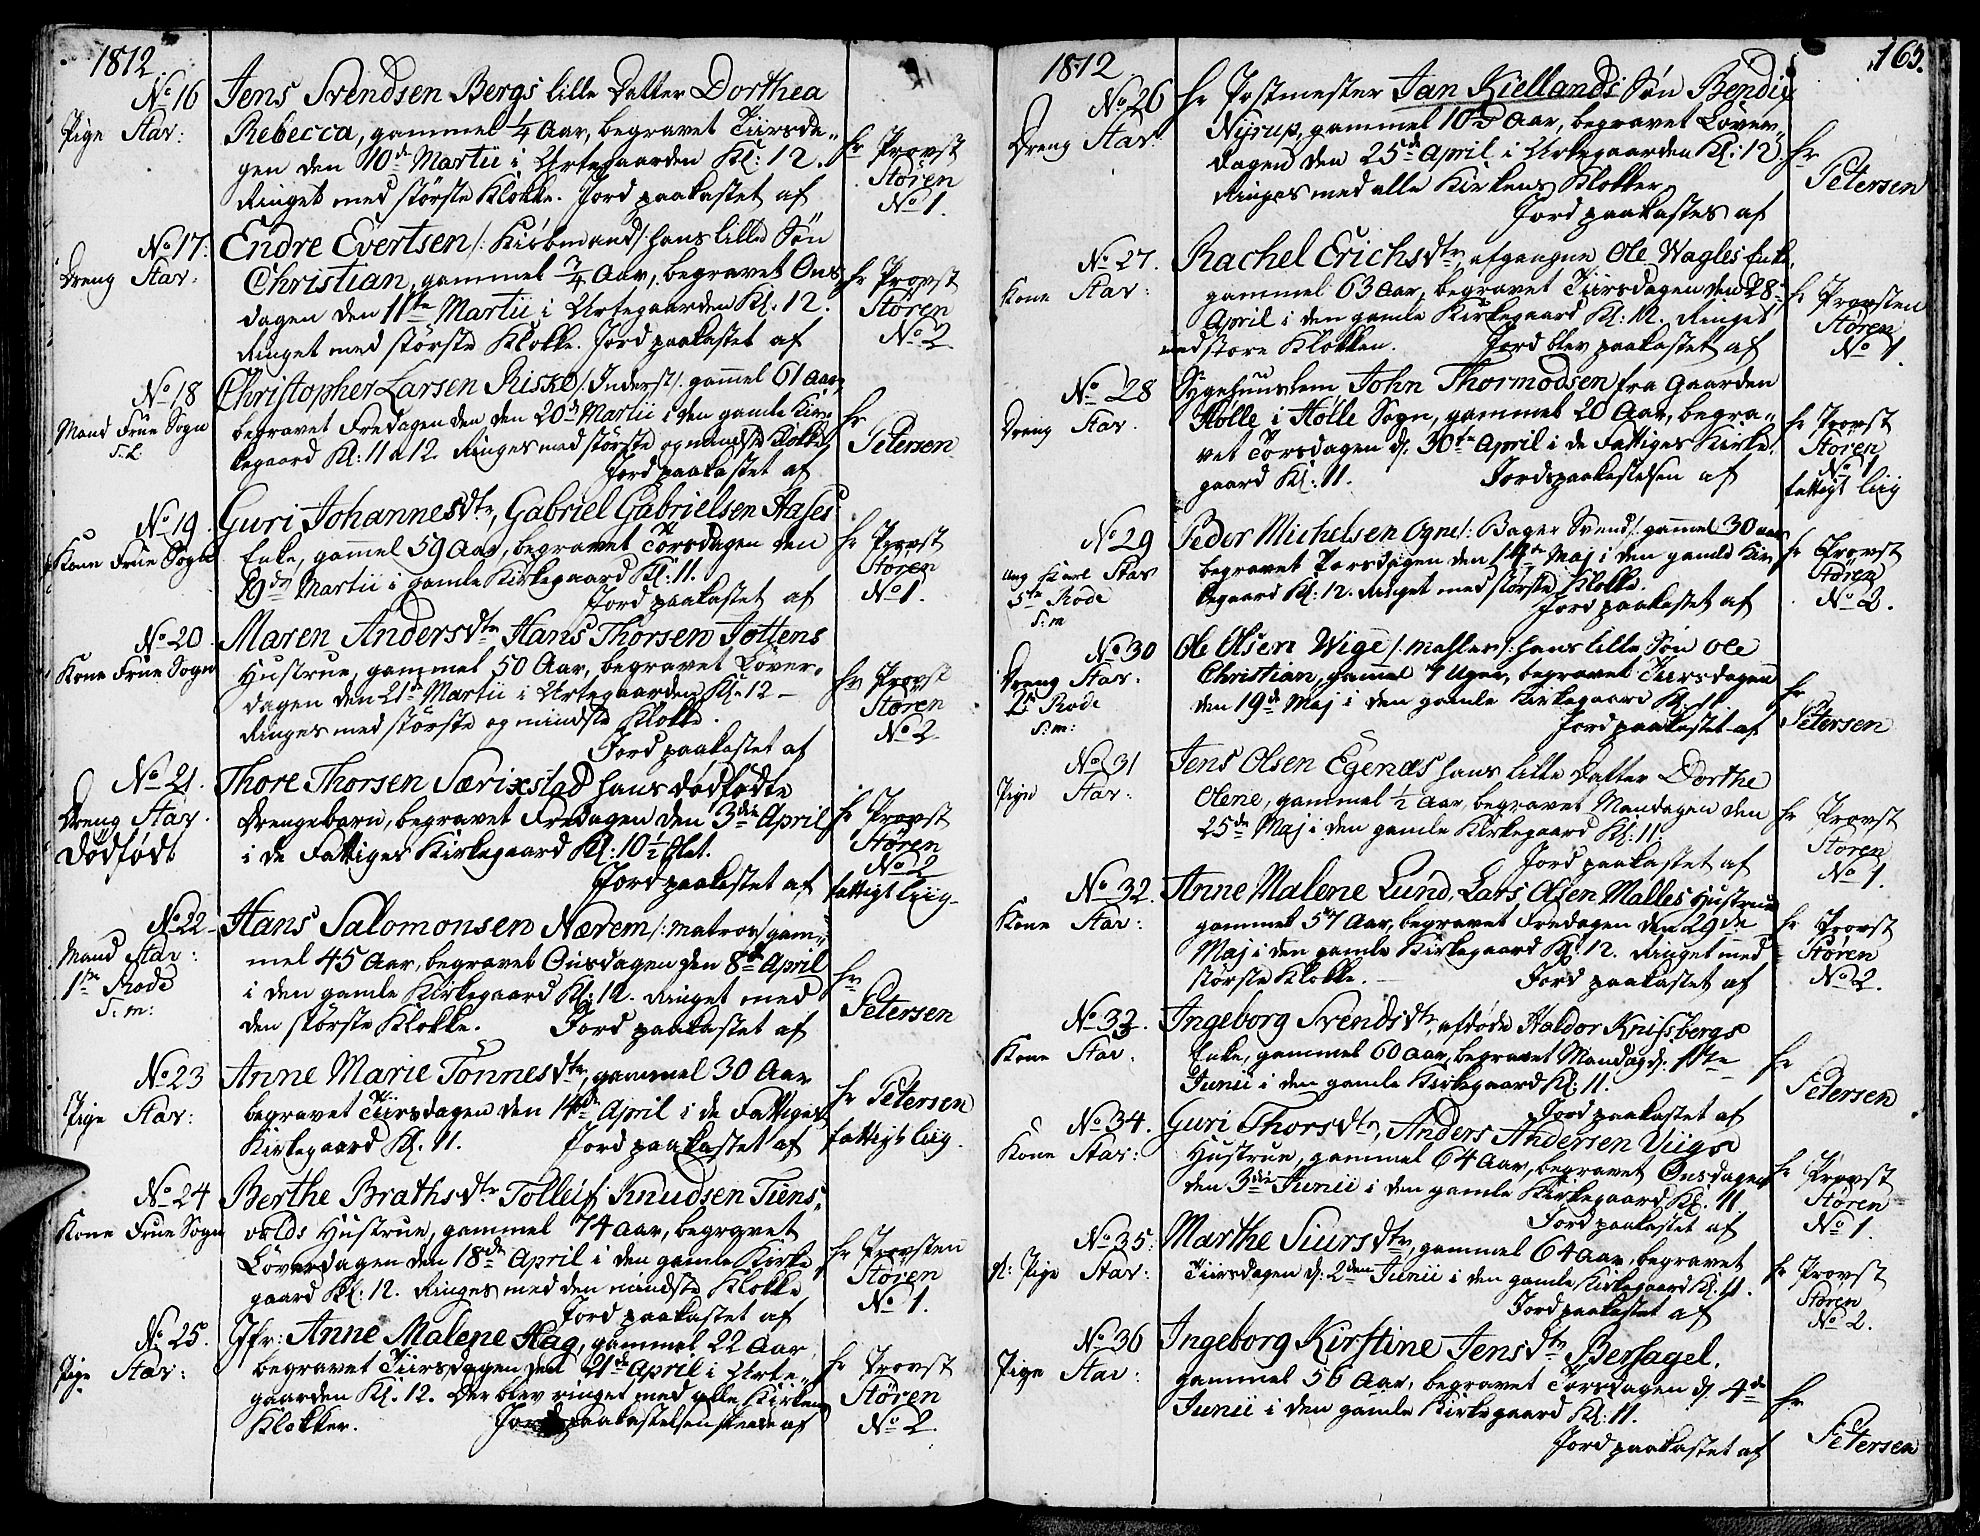 1812
No 16
Pige Stav:
Jens Svendsen Bergs lille Datter Dorthea
Rebecca, gammel 1/4 Aar, begravet Tiirsda-
gen den 10de Martii i Urtegaarden Kl: 12.
Ringet med störste Klokke. Jord paakastet af
hr Provst
Støren
No 1.
No 17.
Dreng Stav:
Endre Evertsen /: Kiöbmand :/ hans lille Sön
Christian, gammel 3/4 Aar, begravet Ons-
dagen den 11te Martii i Urtegaarden Kl: 12.
Ringet med störste Klokke. Jord paakastet af
hr Provst
Støren
No 2
No 18
Mand Frue Sogn
Christopher Larsen Riske /: Inderst :/ gamel 61 Aar,
begravet Fredagen den den 20de Martii i den gamle Kir-
kegaard Kl: 11 a 12. Ringes med störste og mindste Klokke
Jord paakastet af
hr
Petersen
No 19.
Kone Frue Sogn
Guri Johannesdtr, Gabriel Gabrielsen Hases
Enke, gamel 59 Aar, begravet Torsdagen den
19de Martii i gamle Kirkegaard Kl: 11.
Jord paakastet af
hr Provst
Støren
No 1.
No 20
Kone Frue Sogn
Maren Andersdtr Hans Thorsen Jottens
Hustrue, gammel 50 Aar, begravet Löver-
dagen den 21de Martii i Urtegaarden Kl: 12 -
Ringes med störste og mindste Klokke.
Jord paakastet af
hr Provst
Støren
No 2
No 21.
Dreng Stav.
Dödfödt
Thore Thorsen Særixstad hans dödfödte
Drengebarn, begravet Fredagen den 3die April
i de Fattiges Kirkegaard Kl: 10 1/2 Slet.
Jord paakastet af
hr Provst
Støren
No 2
fattigt Liig
No 22
Mand Stav:
1ste Rode
S: m:
Hans Salomonsen Nærem /: Matros :/ gam-
mel 45 Aar, begravet Onsdagen den 8de April
i den gamle Kirkegaard Kl: 12. Ringet med
den störste Klokke. Jord paakastet af
hr
Petersen
No 23
Pige Stav:
Anne Marie Tonnesdtr, gammel 30 Aar
begravet Tiirsdagen den 14de April i de Fattiges
Kirkegaard Kl. 11. Jord paakastet af
hr Petersen
fattigt Liig.
No 24
Kone Frue Sogn
Berthe Brathsdtr Tolleif Knudsen Tiens-
volds Hustrue, gammel 74 Aar, begravet
Löverdagen den 18de April i den gamle Kirke
gaard Kl: 12. Ringes med den mindste Klokke
Jord paakastet af
hr Provsten
Støren
No 1.
No 25.
Pige Stav:
Jfr: Anne Malene Hag, gammel 22 Aar
begravet Tiirsdagen den 21de April i Urte-
gaarden Kl. 12. Der blev ringet med alle Kirkens
Klokker. Jordpaakastelsen skeede af
hr Provst
Støren
No 2.
1812
163.
No 26
Dreng Stav:
hr Postmester Jan Kiellands Sön Bendix
Nyrup, gammel 10 Aar, begravet Löver-
dagen den 25de April i Urtegaarden Kl: 12
Ringes med alle Kirkens Klokker,
Jord paakastes af
hr
Petersen
No 27.
Kone Stav:
Rachel Erichsdtr, afgangne Ole Wagles Enke,
gammel 63 Aar, begravet Tiirsdagen den 28de
April i den gamle Kirkegaard Kl: 12. Ringet
med store Klokken. Jord blev paakastet af
hr Provsten
Støren
No 1.
No 28
Dreng Stav.
Sygehuuslem John Thormodsen fra Gaarden
Holle i Hölle Sogn, gammel 20 Aar, begra-
vet Torsdagen d. 30te April i de Fattiges Kirke-
gaard Kl: 11. Jordspaakastelsen af
hr Provst
Støren
No 1
fattigt Liig
No 29
ung Karl Stav
5te Rode
S: m
Peder Michelsen Ogne /: Bager Svend :/ gamel 30 aar
begravet Torsdagen den 14de Maj i den gamle Kir-
kegaard Kl: 12. Ringet med störste Klokke.
Jord paakastet af
hr Provst
Støren
No 2.
No 30
Dreng Stav.
2de Rode
S: m:
Ole Olsen Wige /: Mahler :/ hans lille Sön Ole
Christian, gamel 7 Uger, begravet Tiirsdagen
den 19de Maj i den gamle Kirkegaard Kl. 11.
Jord paakastet af
hr
Petersen
No 31
Pige Stav:
Jens Olsen Egenæs hans lille Datter Dorthe
Olene, gammel 1/2 Aar, begravet Mandagen den
25de Maj i den gamle Kirkegaard Kl: 11
Jord paakastet af
hr Provst
Støren
No 1.
No 32.
Kone Stav:
Anne Malene Lund, Lars Olsen Malles Hustrue
gammel 57 Aar, begravet Fredagen den 29de
Maj i den gamle Kirkegaard Kl. 12. Ringet med
störste Klokke. Jord paakastet af
hr Provst
Støren
No 2.
No 33.
Kone Stav:
Ingeborg Svendsdtr, afdöde Haldor Knifsbergs
Enke, gammel 60 Aar, begravet Mandag d. 1ste
Junii i den gamle Kirkegaard Kl: 11.
Jord paakastet af
hr
Petersen
No 34.
Kone Stav:
Guri Thorsdtr, Anders Andersen Viigs
Hustrue, gammel 64 Aar, begravet Onsdagen
den 3die Junii i den gamle Kirkegaard Kl. 11.
Jord paakastet af
hr Provst
Støren
No 1.
No 35.
gl: Pige Stav:
Marthe Siursdtr, gammel 64 Aar, begravet
Tiirsdagen d. 2den Junii i den gamle Kirkegaard Kl. 11.
Jord paakastet af
hr Provst
Støren
No 2.
No 36
Pige Stav:
Ingeborg Kirstine Jensdtr Bersagel.
gammel 56 Aar, begravet Torsdagen d. 4de
Junii i den gamle Kirkegaard Kl: 11.
Jord paakastet af
hr
Petersen